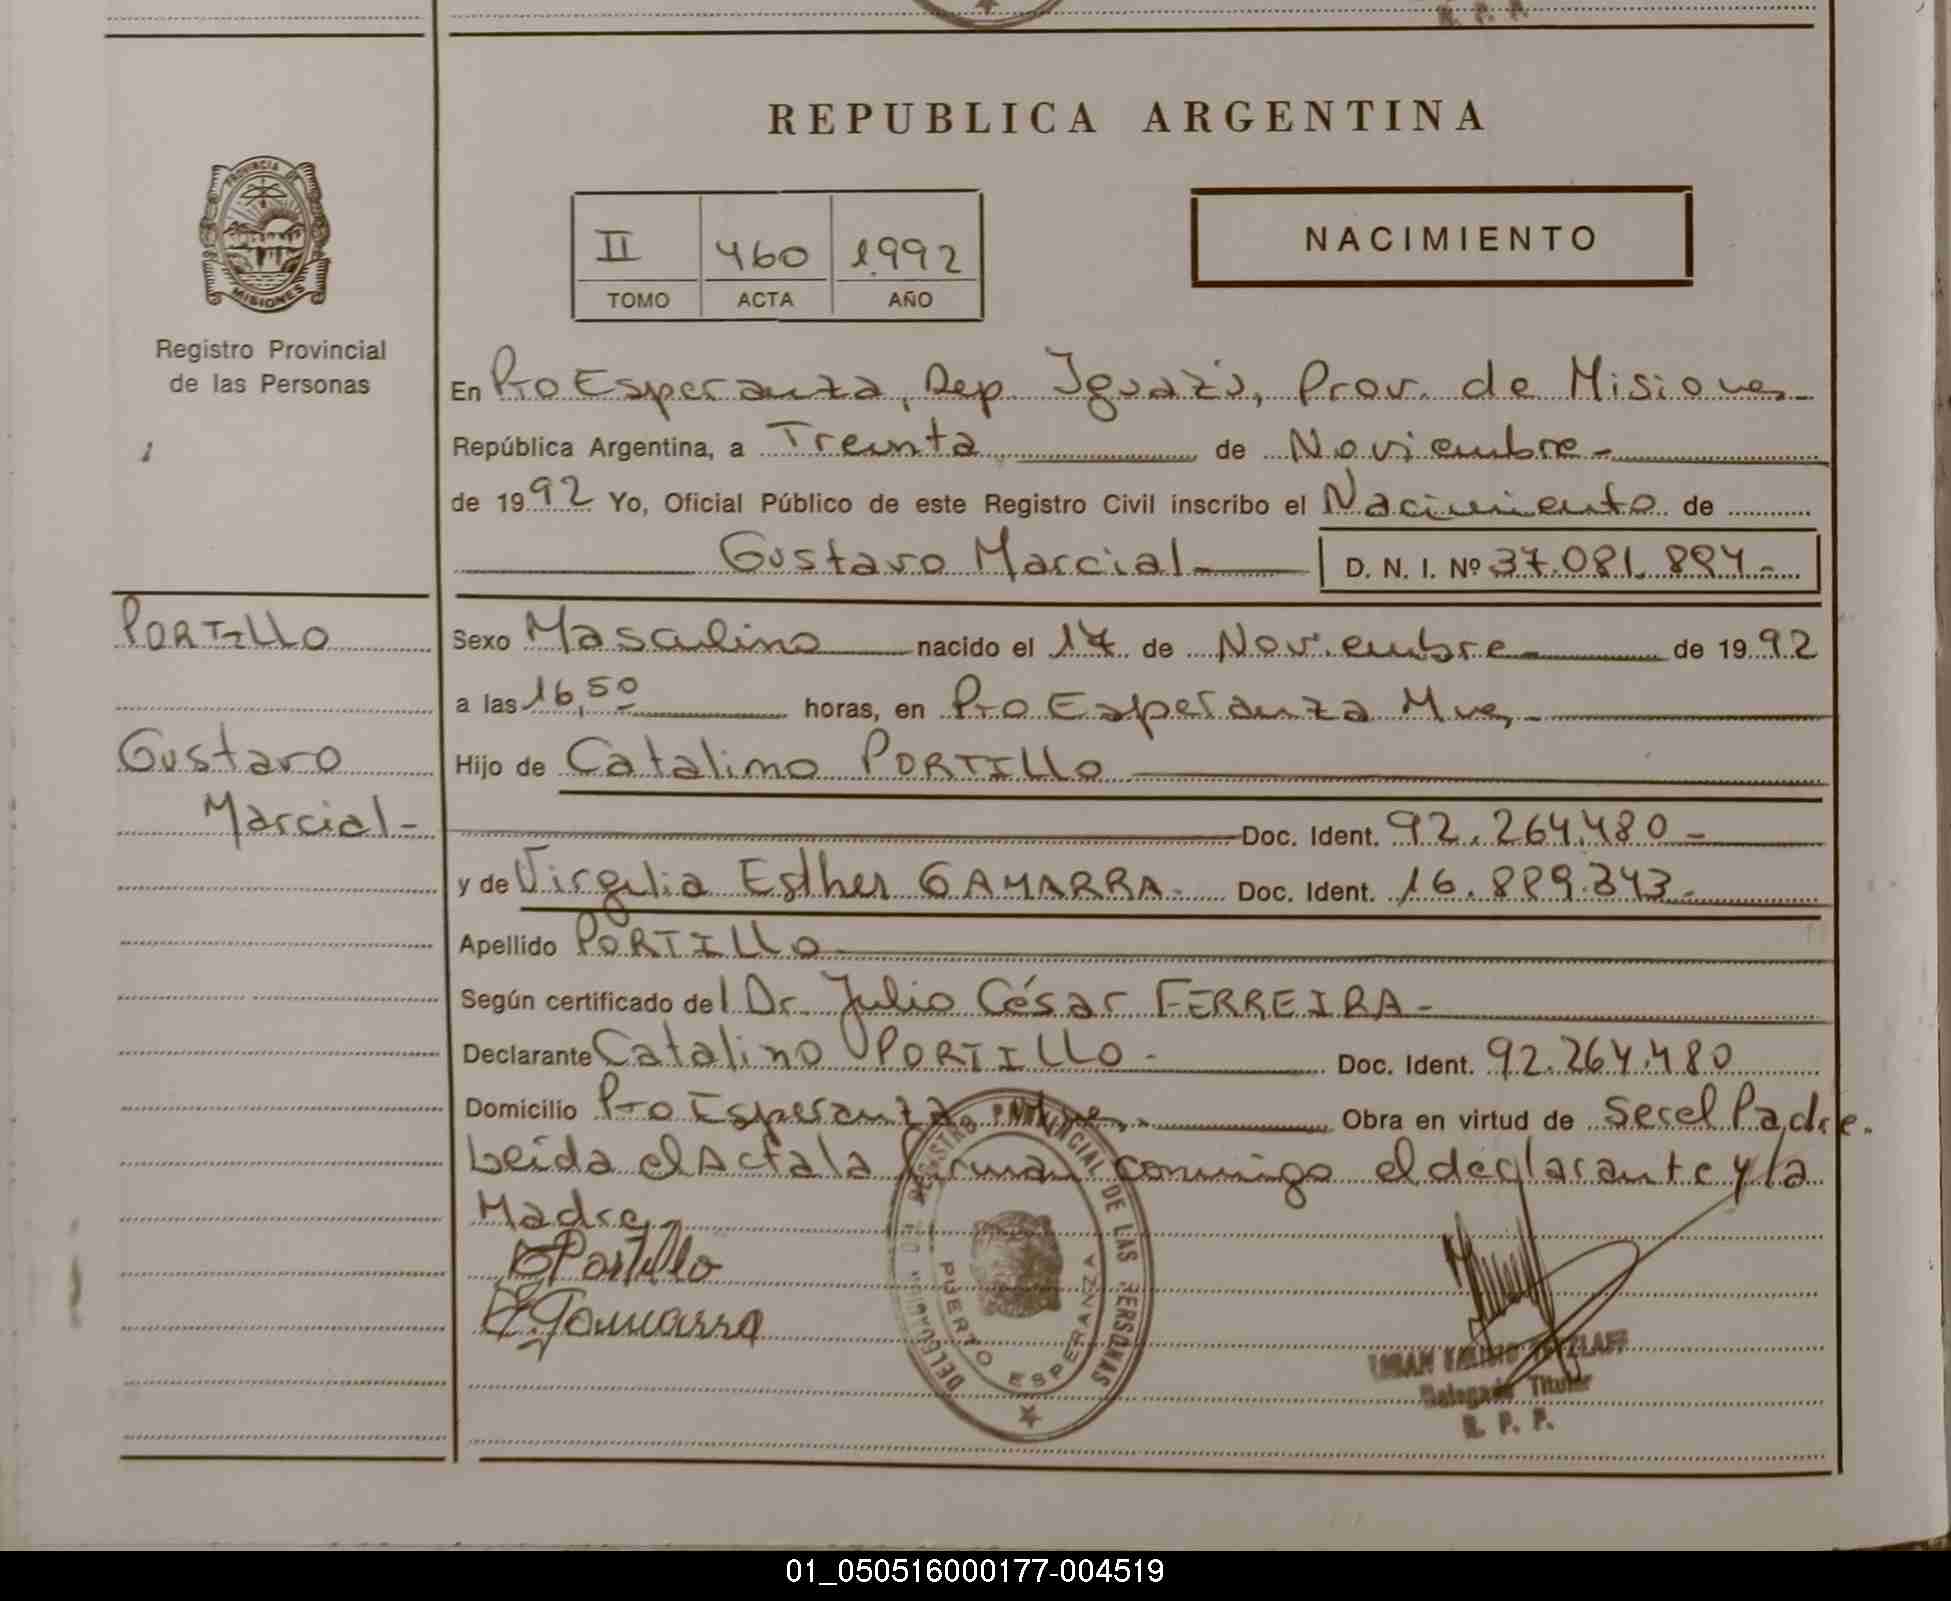 R. P. P.
REPUBLICA ARGENTINA
PROVINCIA DE
MISIONES
Registro Provincial
de las Personas
II 460 1.992
TOMO ACTA AÑO
NACIMIENTO
En Pto Esperanza, Dep. Iguazú, Prov. de Misiones-
República Argentina, a Treinta de Noviembre-
de 1992 Yo, Oficial Público de este Registro Civil inscribo el Nacimiento de
Gustavo Marcial- D. N. I. Nº 37.081.884-
PORTILLO
Gustavo
Marcial-
Sexo Masculino nacido el 17 de Noviembre- de 1992
a las 16,50 horas, en Pto Esperanza Mnes-
Hijo de Catalino PORTILLO
Doc. Ident. 92.264.480-
y de Virgilia Esther GAMARRA- Doc. Ident. 16.889.343-
Apellido PORTILLO
Según certificado del Dr. Julio César FERREIRA-
Declarante Catalino PORTILLO- Doc. Ident. 92.264.480
Domicilio Pto Esperanza Mnes- Obra en virtud de ser el Padre.
Leída el Acta la firman conmigo el declarante y la
Madre,
Portillo
Gamarra
REGISTRO PROVINCIAL DE LAS PERSONAS
PUERTO ESPERANZA
Delegado Titular
R. P. P.
01_050516000177-004519